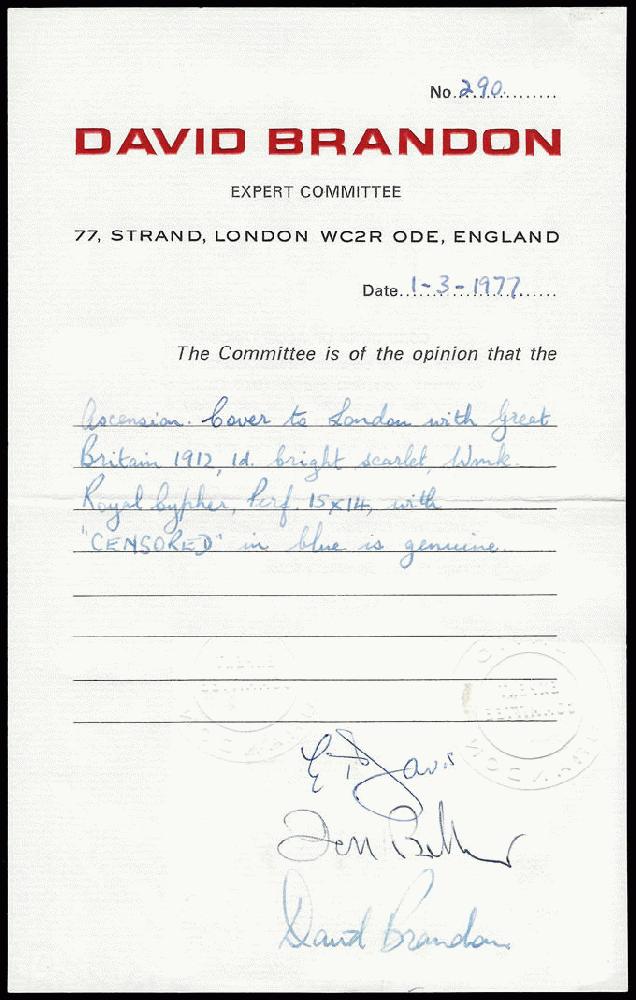 No. 290
DAVID BRANDON
EXPERT COMMITTEE
77, STRAND, LONDON WC2R ODE, ENGLAND
Date 1-3-1977
The Committee is of the opinion that the
Ascension. Cover to London with Great
Britain 1912, 1d. bright scarlet, Wmk.
Royal Cypher, Perf. 15x14, with
"CENSORED" in blue is genuine.
David Brandon